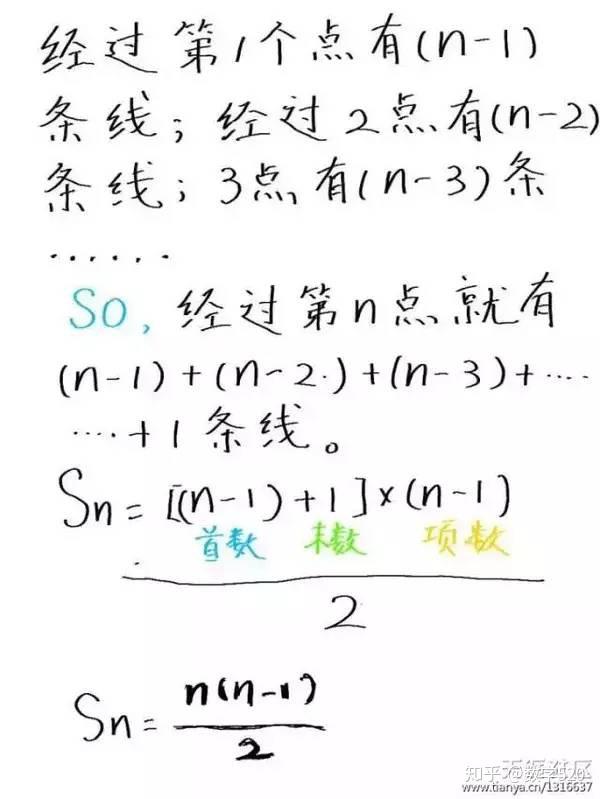 经过第1个点有(n-1)
条线；经过2点有(n-2)
条线；3点有(n-3)条
······
So, 经过第n点就有
(n-1)+(n-2.)+(n-3)+····
····+1条线。
Sn=[(n-1)+1]×(n-1)
首数 末数 项数
2
Sn=n(n-1)
2
知乎 @数学520
天涯社区
www.tianya.cn/1316637